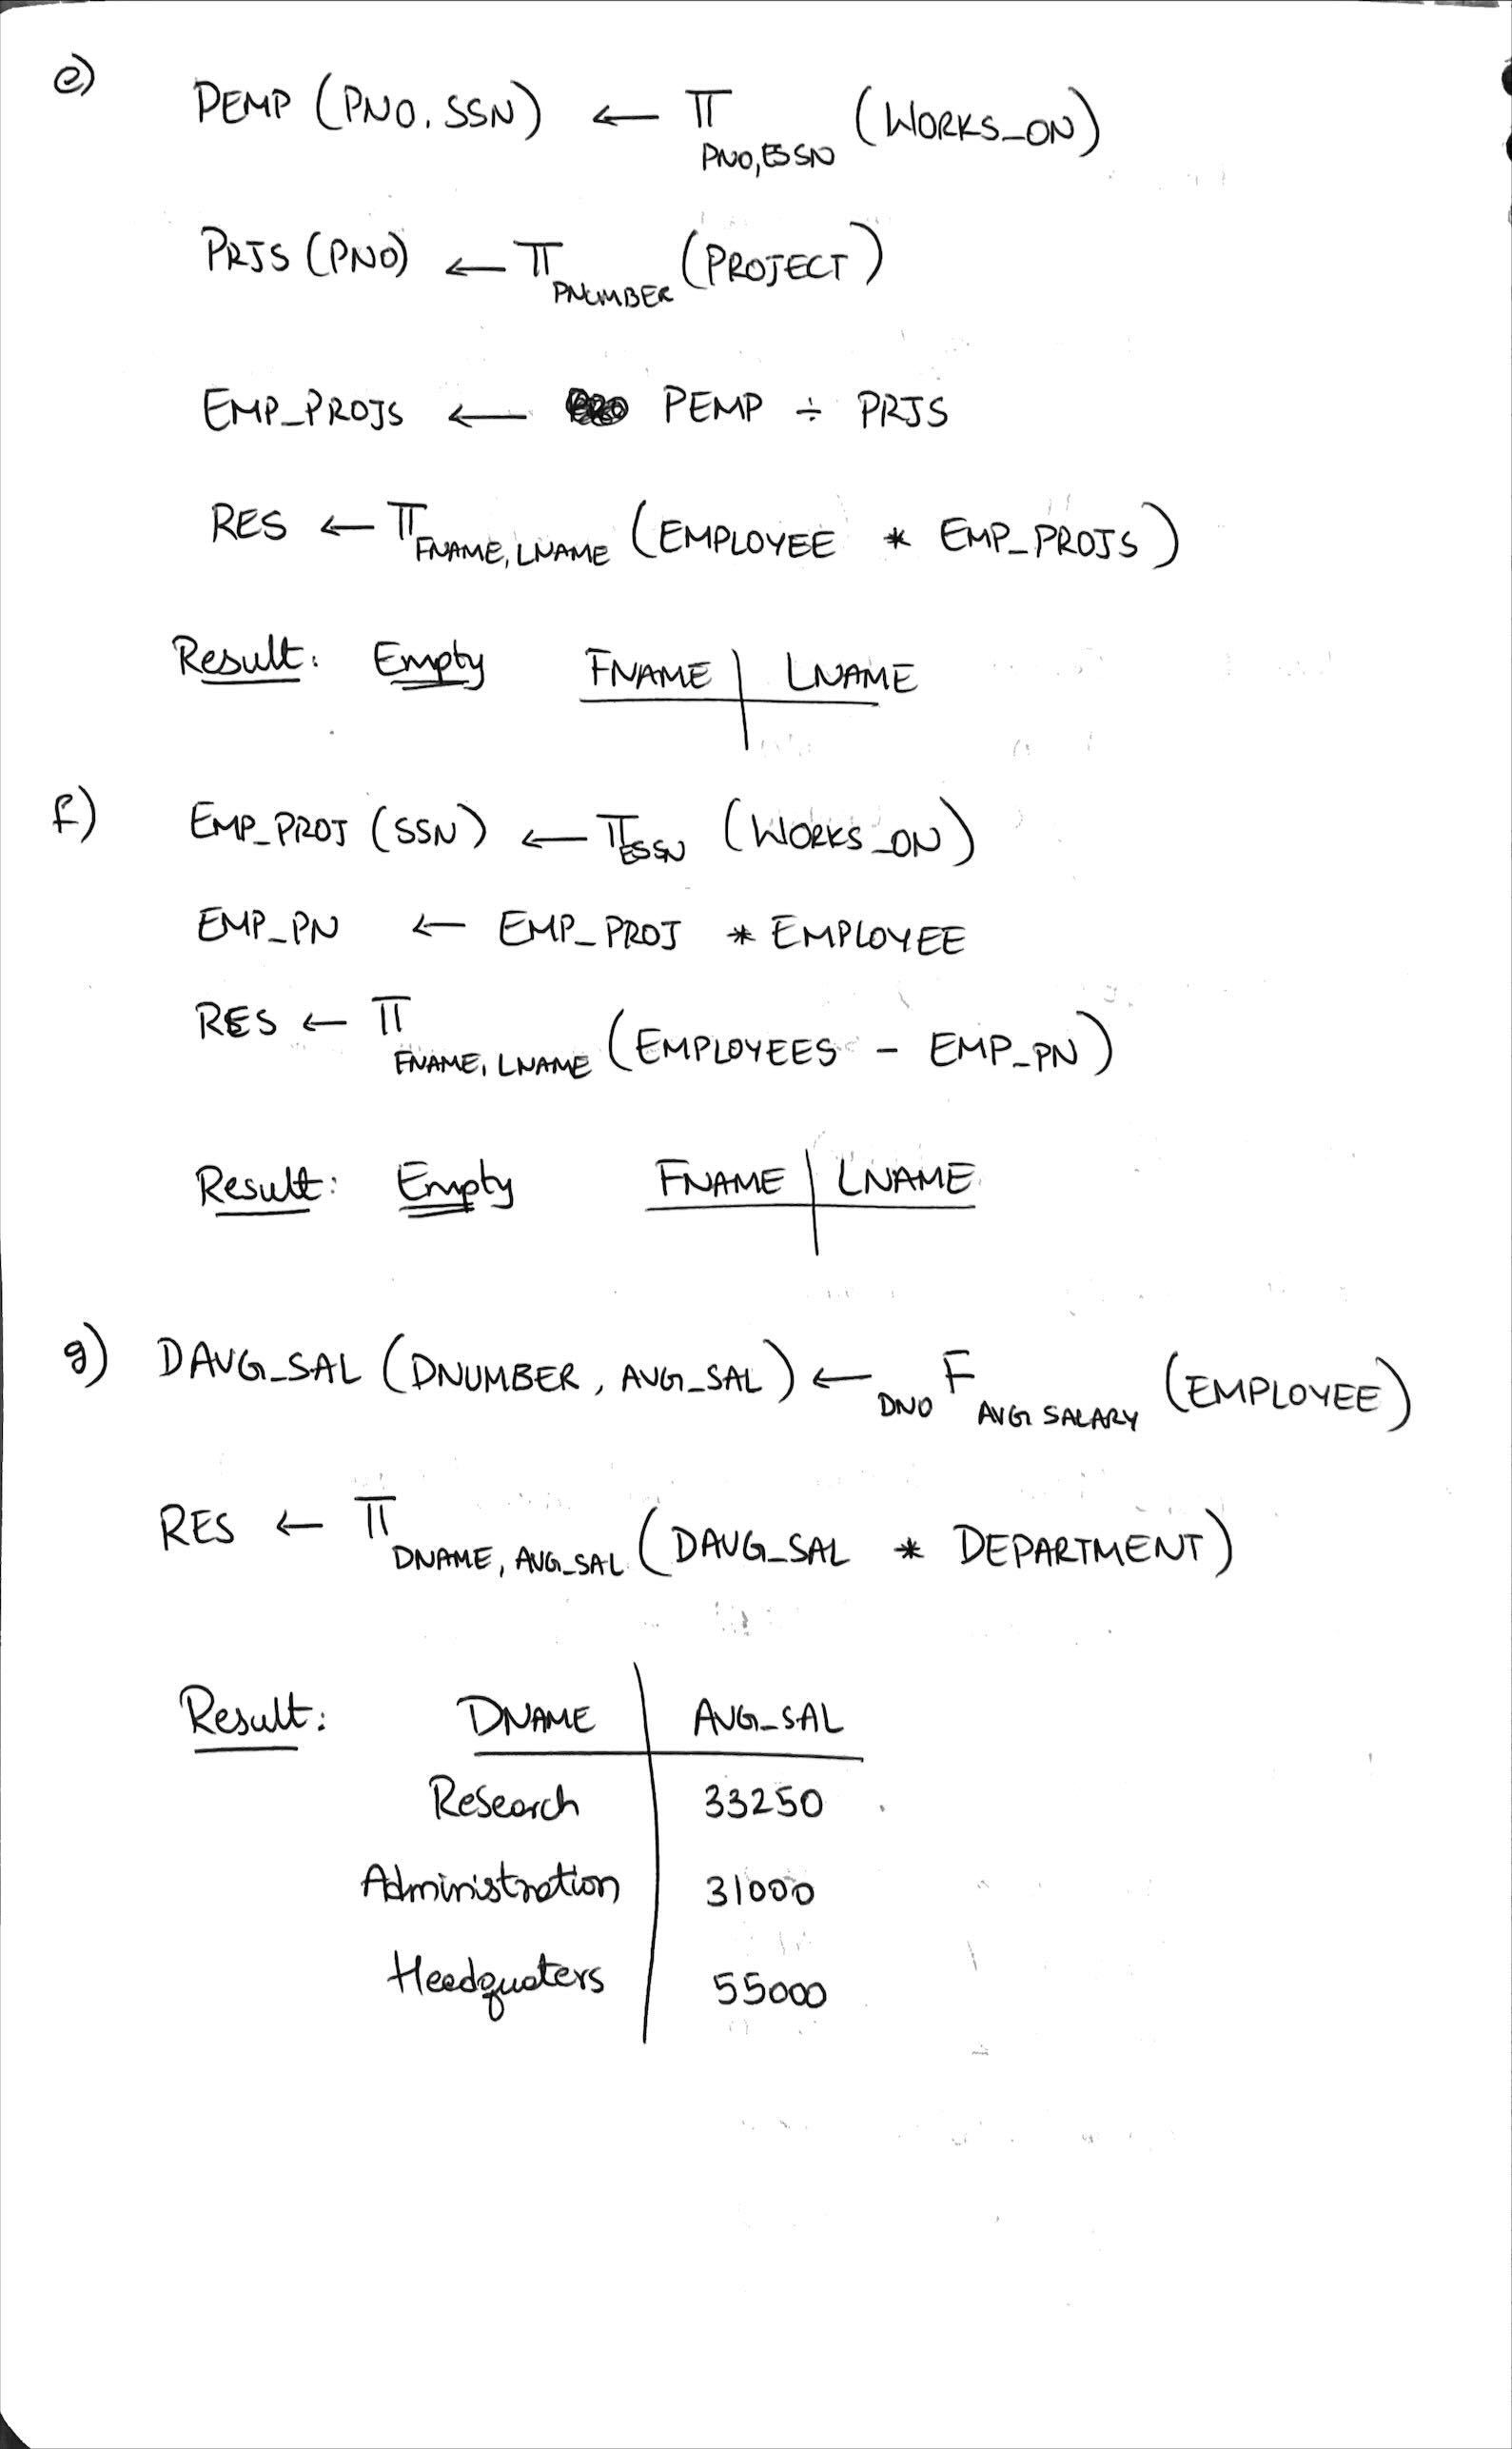 e) PEMP (PNO, SSN) ← π PNO, ESSN (WORKS_ON)
PRJS (PNO) ← π PNUMBER (PROJECT)
EMP_PROJS ← PEMP ÷ PRJS
RES ← π FNAME, LNAME (EMPLOYEE * EMP_PROJS)
Result: Empty FNAME | LNAME
f) EMP_PROJ (SSN) ← π ESSN (WORKS_ON)
EMP_PN ← EMP_PROJ * EMPLOYEE
RES ← π FNAME, LNAME (EMPLOYEES - EMP_PN)
Result: Empty FNAME | LNAME
g) DAVG_SAL (DNUMBER, AVG_SAL) ← DNO F AVG SALARY (EMPLOYEE)
RES ← π DNAME, AVG_SAL (DAVG_SAL * DEPARTMENT)
Result: DNAME | AVG_SAL
Research | 33250
Administration | 31000
Headquaters | 55000